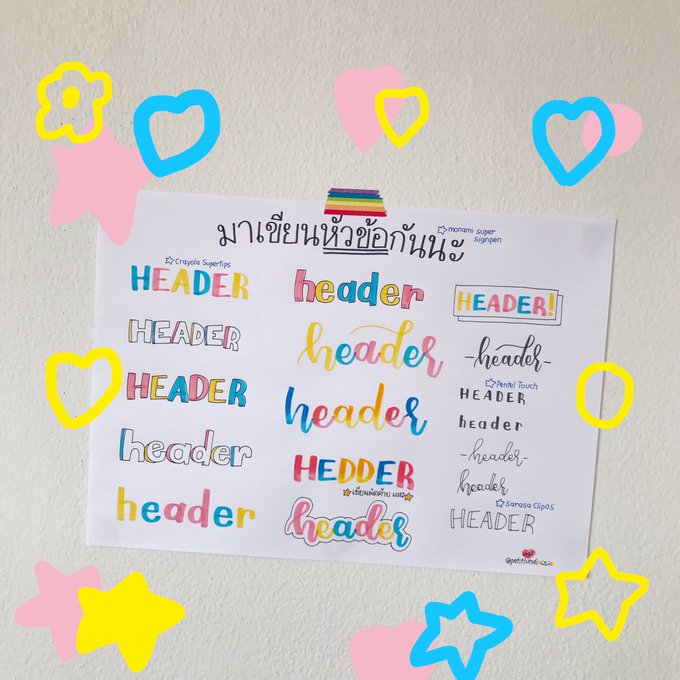 มาเขียนหัวข้อกันนะ
monami super
signpen
Crayola Supertips
HEADER
HEADER
HEADER
header
header
header
header
header
HEDDER
เขียนผิดค้าบ แหะ
header
HEADER!
-header-
Pentel Touch
HEADER
header
-header-
header
Sarasa Clip05
HEADER